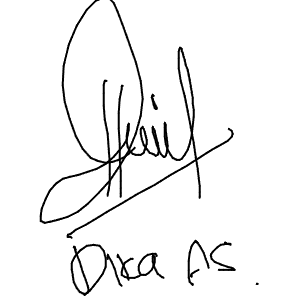 Dika AS.